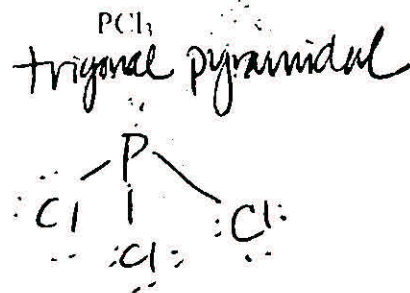 PCl₃
trigonal pyramidal
P
Cl Cl
Cl